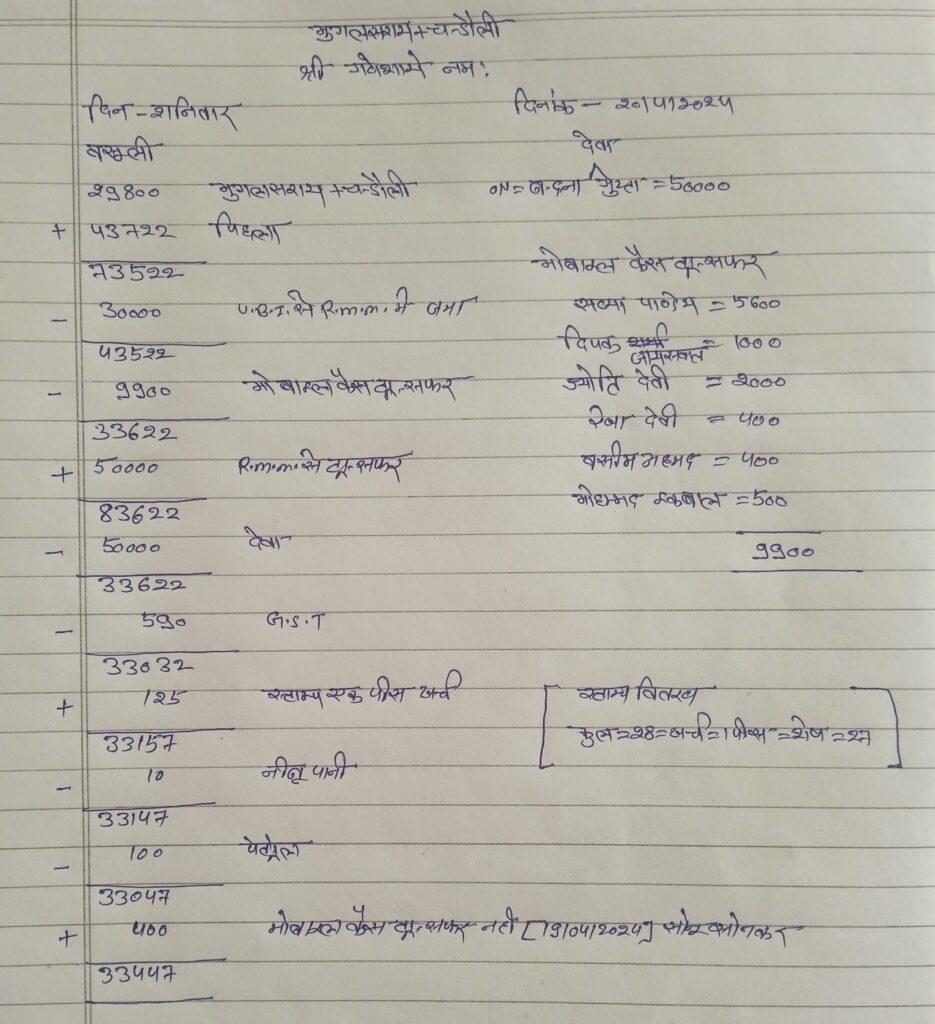 मुगलसराय+चन्डौली
श्री गणेशाये नम:
दिन - शनिवार दिनांक - २०/५/२०२५
वसूली देवा
२9800 मुगलसराय+चन्डौली ON = बन्दना गुप्ता = 50000
+ 43722 पिछला
73522 मोबाइल कैस ट्रान्सफर
- 30000 U.B.I. से R.m.m. मे जमा पाण्डेय = 5600
43522 दिपक जायसवाल = 1000
- 9900 मोबाइल कैस ट्रान्सफर ज्योति देवी = 2000
33622 रेखा देवी = 400
+ 50000 R.m.m. से ट्रान्सफर वसीम अहमद = 400
83622 मोहम्मद इकबाल = 500
- 50000 देवा 9900
33622
- 590 G.S.T
33032
+ 125 स्टाम्प एक पीस खर्च स्टाम्प वितरण
33157 कुल = 28 = खर्च = 1 पीस = शेष = 27
- 10 नीबू पानी
33147
- 100 पेट्रोल
33047
+ 400 मोबाइल कैस ट्रान्सफर नही [19/04/2024] सोनकर
33447